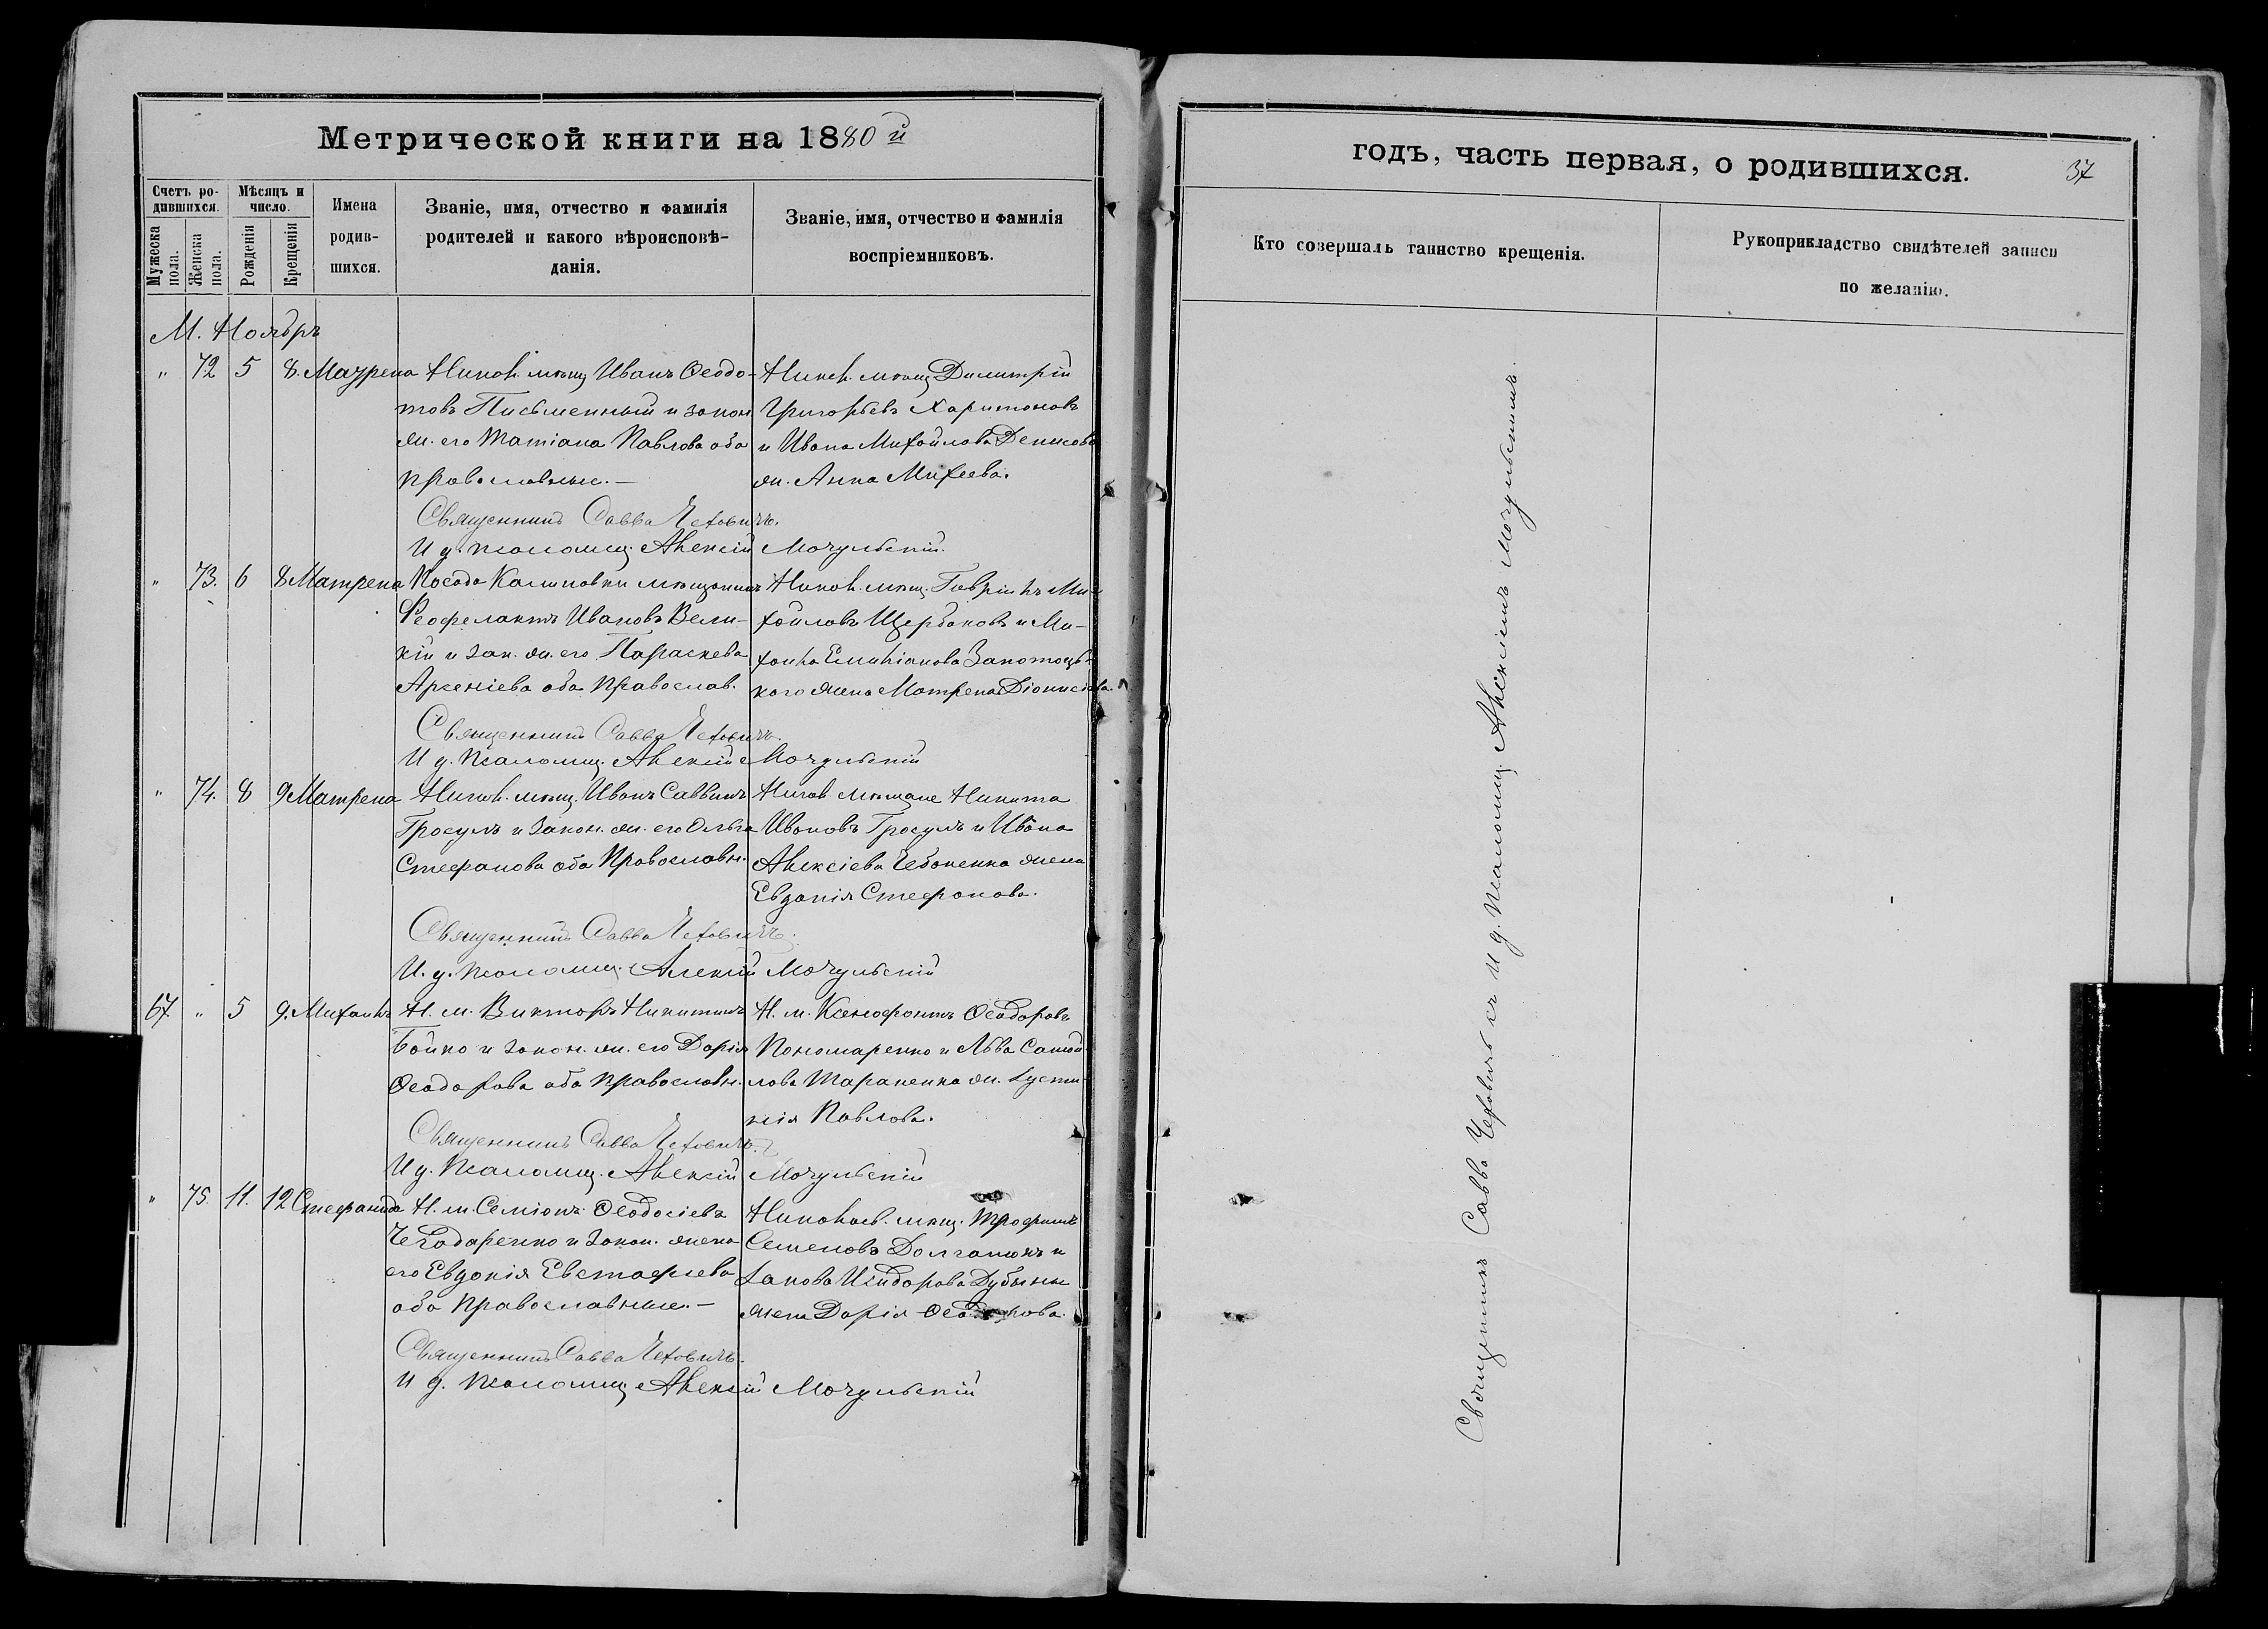 Метрической книги на 1880й
Счетъ родившихся.
Мужеска пола.
Женска пола.
Мѣсяцъ и число.
Рожденія
Крещенія
Имена родившихся.
Званіе, имя, отчество и фамилія
родителей и какого вѣроисповѣданія.
Званіе, имя, отчество и фамилія
воспріемниковъ.
М. Ноябрь
" 72 5 8. Мавреna Никол. мѣщ. Иванъ Ѳеодотовъ
Письменный и закон.
ж. его Татіана Павлова оба
православные.—
Никол. мѣщ. Димитрій
Григорьевъ Харитоновъ
и Ивана Михайлова Денисова
ж. Анна Михеева.
Священникъ Савва Чеховичъ.
И д. псаломщ. Алексій Мочульскій.
" 73. 6 8 Матрена Посада Калиновки мѣщанинъ
Феофелактъ Ивановъ Великій
и зак. ж. его Параскева
Арсеніева оба православ.
Никол. мѣщ. Гавріилъ Михайловъ
Щербаковъ и Михаила
Емиліанова
жена Матрена Діонисіева.
Священникъ Савва Чеховичъ.
И д. псаломщ. Алексій Мочульскій
" 74. 8 9 Матрена Никол. мѣщ. Иванъ Саввинъ
Гросулъ и закон. ж. его Ольга
Стефанова оба православн.
Никол. мѣщане Никита
Ивановъ Гросулъ и Ивана
Алексіева Чебоненка жена
Евдокія Стефанова.
Священникъ Савва Чеховичъ.
И. д. псаломщ. Алексій Мочульскій
67. " 5 9. Михаилъ Н. м. Викторъ Никитинъ
Бойко и закон. ж. его Дарія
Ѳеодорова оба православн.
Н. м. Ксенофонтъ Ѳеодоровъ
Пономаренко и Льва Самойлова
Тараненка ж. Іустинія
Павлова.
Священникъ Савва Чеховичъ.
И д. псаломщ. Алексій Мочульскій
" 75. 11. 12 Стефанида Н. м. Семіонъ Ѳеодосіевъ
Чебодаренко и закон. жена
его Евдокія Евстафіева
оба православные.—
Николаев. мѣщ. Трофимъ
Семеновъ Долганюкъ и
Іакова Исидорова Дубины
жена Дарія Ѳеодорова.
Священникъ Савва Чеховичъ.
И д. псаломщ. Алексій Мочульскій
годъ, часть первая, о родившихся.
37
Кто совершалъ таинство крещенія.
Рукоприкладство свидѣтелей записи
по желанію.
Священникъ Савва Чеховичъ съ И д. псаломщ. Алексіемъ Мочульскимъ.